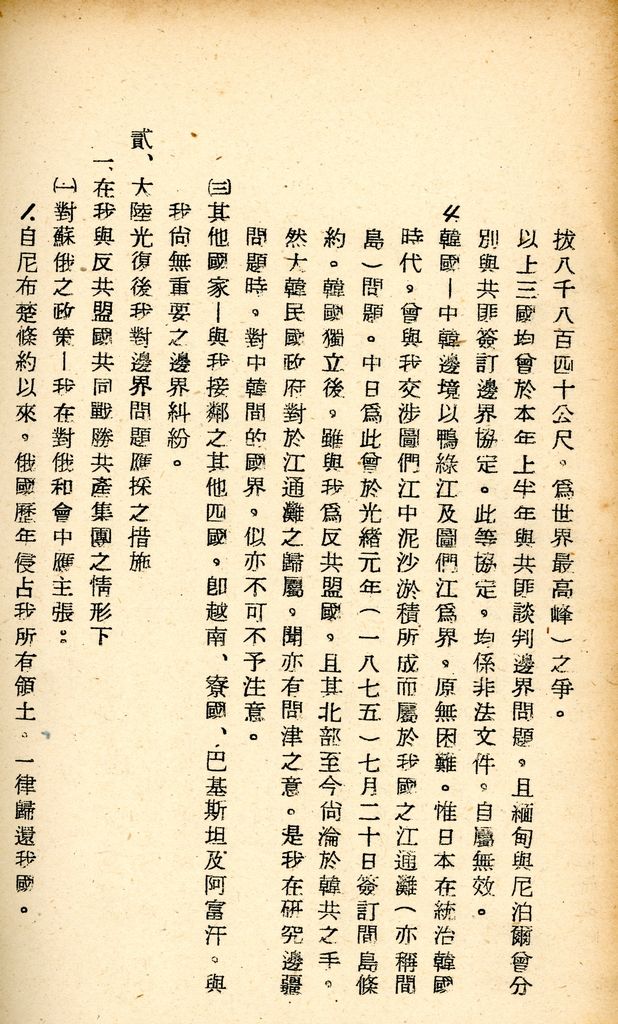 拔八千八百四十公尺，為世界最高峰）之爭。
以上三國均曾於本年上半年與共匪談判邊界問題，且緬甸與尼泊爾曾分
別與共匪簽訂邊界協定。此等協定，均係非法文件，自屬無效。
4.韓國—中韓邊境以鴨綠江及圖們江為界，原無困難。惟日本在統治韓國
時代，曾與我交涉圖們江中泥沙淤積所成而屬於我國之江通灘（亦稱間
島）問題。中日為此曾於光緒元年（一八七五）七月二十日簽訂間島條
約。韓國獨立後，雖與我為反共盟國，且其北部至今尚淪於韓共之手，
然大韓民國政府對於江通灘之歸屬，聞亦有問津之意。是我在研究邊疆
問題時，對中韓間的國界，似亦不可不予注意。
㈢其他國家—與我接鄰之其他四國，即越南、寮國、巴基斯坦及阿富汗，與
我尚無重要之邊界糾紛。
貳、大陸光復後我對邊界問題應採之措施
一、在我與反共盟國共同戰勝共產集團之情形下
㈠對蘇俄之政策—我在對俄和會中應主張：
1.自尼布楚條約以來，俄國歷年侵占我所有領土，一律歸還我國。